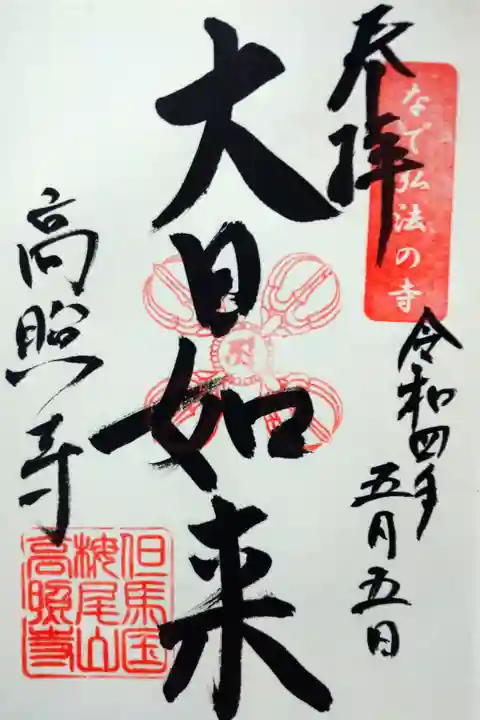 なで弘法の寺
奉拝
令和四年
五月五日
大日如来
高照寺
但馬国
栴尾山
高照寺